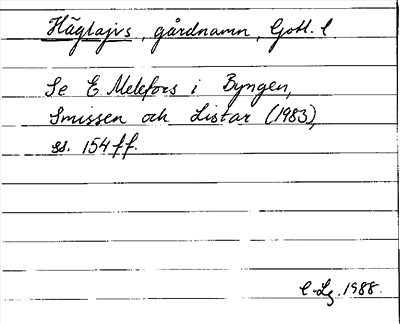 Häglajvs, gårdnamn, Gotl. l
Se E Melefors i Byngen,
Smissen och Listar (1983),
ss. 154 ff.
C-Lg. 1988.